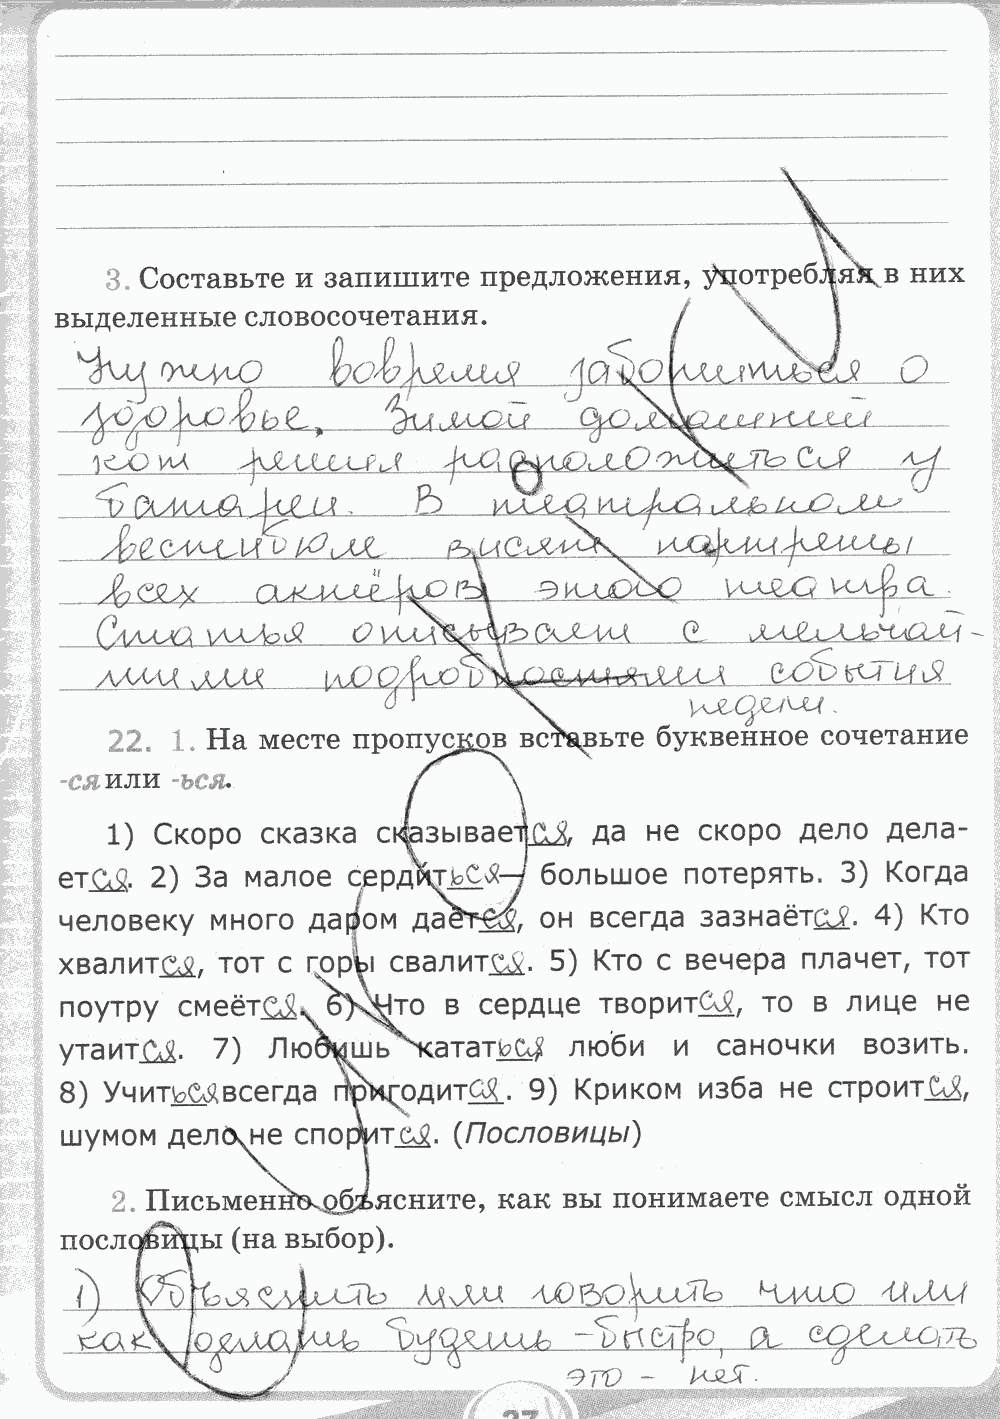 3. Составьте и запишите предложения, употребляя в них
выделенные словосочетания.
Нужно вовремя заботиться о
здоровье. Зимой домашний
кот решил расположиться у
батареи. В театральном
вестибюле висят портреты
всех актёров этого театра.
Статья описывает с мельчай-
шими подробностями события
недели.
22. 1. На месте пропусков вставьте буквенное сочетание
-ся или -ься.
1) Скоро сказка сказывается, да не скоро дело дела-
ется. 2) За малое сердиться — большое потерять. 3) Когда
человеку много даром даётся, он всегда зазнаётся. 4) Кто
хвалится, тот с горы свалится. 5) Кто с вечера плачет, тот
поутру смеётся. 6) Что в сердце творится, то в лице не
утаится. 7) Любишь кататься, люби и саночки возить.
8) Учиться всегда пригодится. 9) Криком изба не строится,
шумом дело не спорится. (Пословицы)
2. Письменно объясните, как вы понимаете смысл одной
пословицы (на выбор).
1) Объяснить или говорить что или
как делать будешь - быстро, а сделать
это - нет.
37